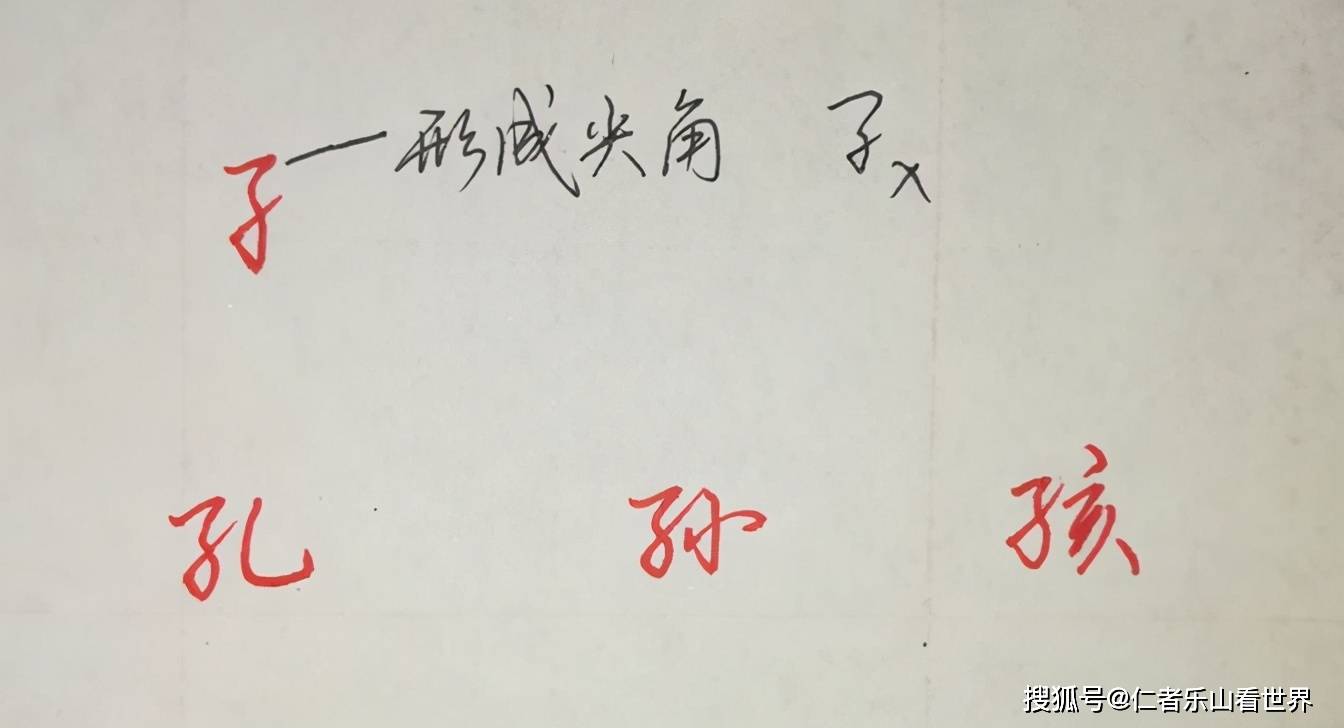 子—形成尖角 子x
孔 孙 孩
搜狐号@仁者乐山看世界